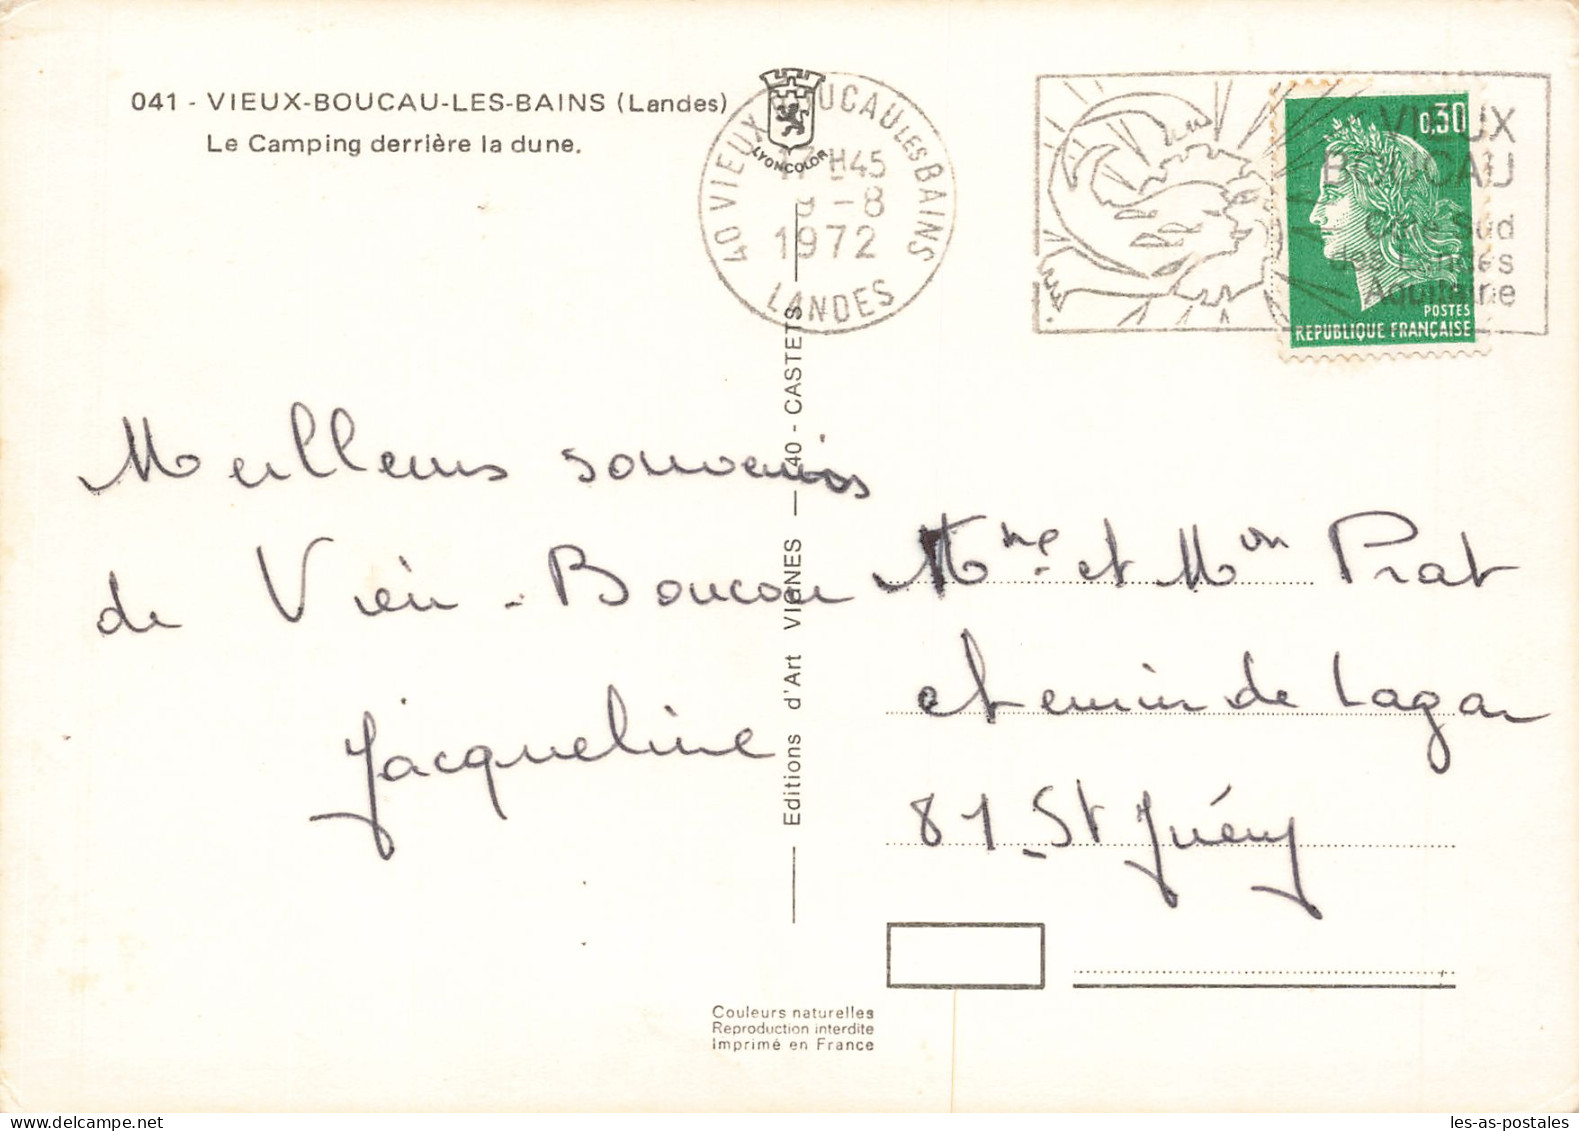 041 - VIEUX-BOUCAU-LES-BAINS (Landes)
Le Camping derrière la dune.
LYONCOLOR
40 VIEUX BOUCAU LES BAINS
17H45
-8
1972
LANDES
VIEUX
BOUCAU
Côte Sud
des Landes
Aquitaine
0,30
POSTES
REPUBLIQUE FRANÇAISE
Meilleurs souvenirs
de Vieu - Boucau
Jacqueline
Editions d'Art VIGNES — 40 - CASTETS
Mme et Mon Prat
chemin de Lagar
81 - St Juéry
Couleurs naturelles
Reproduction interdite
Imprimé en France
les-as-postales